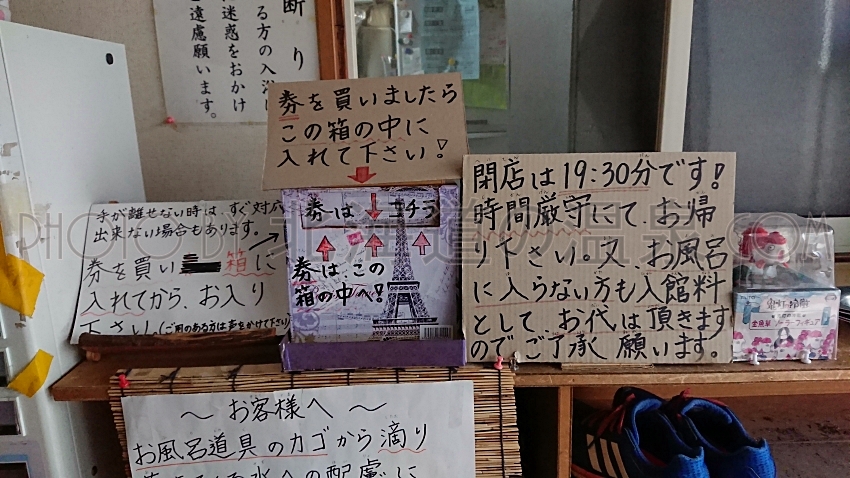 断り
る方の入浴
迷惑をおかけ
遠慮願います。
券を買いましたら
この箱の中に
入れて下さい！
閉店は19:30分です！
時間厳守にて、お帰
り下さい。又、お風呂
に入らない方も入館料
として、お代は頂きます
のでご了承願います。
手が離せない時は、すぐ対応
出来ない場合もあります。
券を買い 箱に
入れてから、お入り
下さい。(ご用のある方は声をかけて下さい)
券は↓コチラ
券は、この
箱の中へ！
～お客様へ～
お風呂道具のカゴから滴り
PHOTO BY 北海道の温泉.COM
金魚草
ソーラーフィギュア